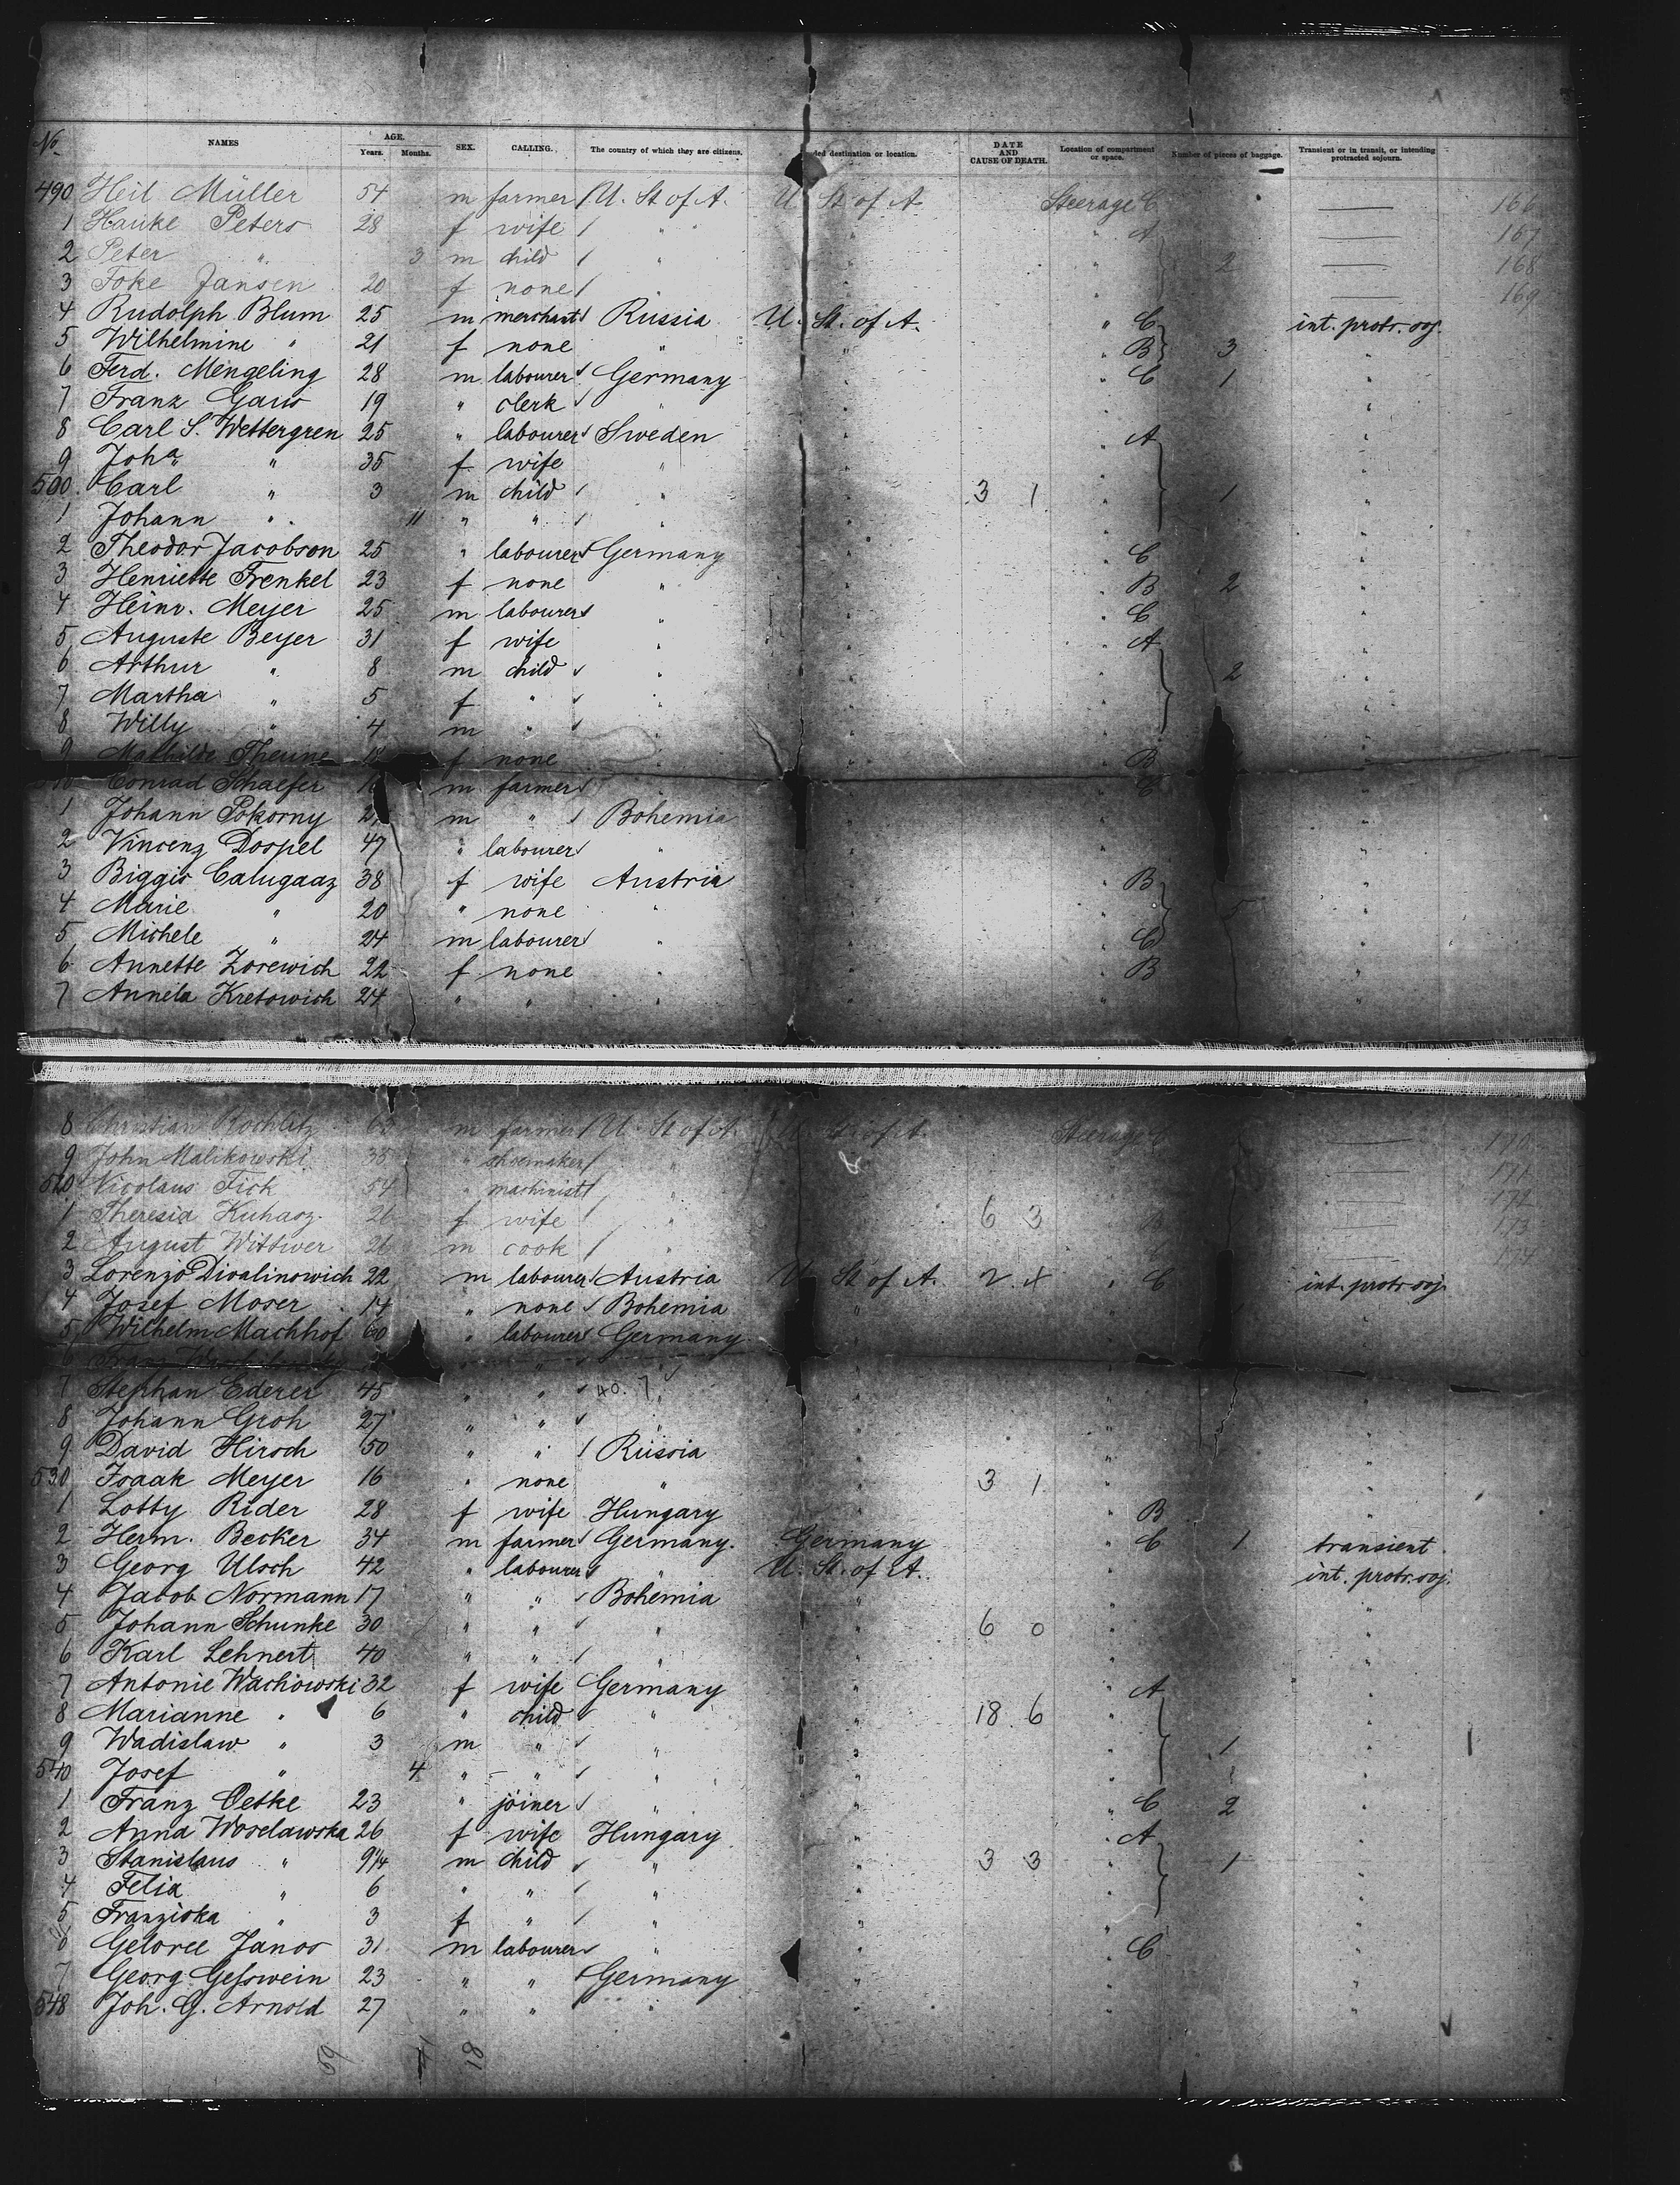 No. NAMES AGE. Years. Months. SEX. CALLING. The country of which they are citizens. ded destination or location. DATE AND CAUSE OF DEATH. Location of compartment or space. Number of pieces of baggage. Transient or in transit, or intending protracted sojourn.
490 Heil Müller 54 m farmer U. St of A. U St of A Steerage C — 166
1 Hauke Peters 28 f wife " " " " A — 167
2 Peter " 3 m child " " " 2 — 168
3 Foke Jansen 20 f none " " " — 169
4 Rudolph Blum 25 m merchant Russia U. St. of A. " C int. protr. soj.
5 Wilhelmine " 21 f none " " " B 3 "
6 Ferd. Mengeling 28 m labourer Germany " " C 1 "
7 Franz 19 " clerk " " " "
8 Carl S. Wettergren 25 " labourer Sweden " " A "
9 Joha " 35 f wife " " " "
500 Carl " 3 m child " " 3 1 " 1 "
1 Johann " 11 " " " " " "
2 Theodor Jacobson 25 " labourer Germany " " C "
3 Henriette Frenkel 23 f none " " " B 2 "
4 Heinr. Meyer 25 m labourer " " " C "
5 Auguste Beyer 31 f wife " " " A "
6 Arthur " 8 m child " " " 2 "
7 Martha " 5 f " " " " "
8 Willy " 4 m " " " " "
9 Mathilde Theune 18 f none " " " B "
Conrad Schaefer m farmer " " C "
1 Johann Pokorny m " Bohemia " " "
2 Vincenz Dospel 47 " labourer " " " "
3 Biggis Calugaaz 38 f wife Austria " " B "
4 Marie " 20 " none " " " 5 "
5 Michele " 24 m labourer " " " C "
6 Annette Zorewich 22 f none " " " B "
7 Annela Kretowich 24 " " " " " "
8 Christian Rochlitz m farmer U. St of A. U St of A. Steerage C — 170
9 John Malikowski 35 " shoemaker " " — 171
520 Nicolaus Fick 54 " machinist " " — 172
1 Theresia Kuhasz. 26 f wife " " 6 3 B — 173
2 August Wittwer 26 m cook " " — 174
3 Lorenzo Divalinowich 22 m labourer Austria U St of A. 2 4 " C int. protr. soj.
4 Josef Moser 14 " none Bohemia " " "
5 Wilhelm Machhof 60 " labourer Germany. " "
6 Franz
7 Stephan Ederer 45 " " 40. 7 " " "
8 Johann Groh 27 " " " " " "
9 David Hirsch 50 " " Russia " " "
530 Isaak Meyer 16 " none " " 3 1 " "
1 Lotty Rider 28 f wife Hungary " " B "
2 Herm. Becker 34 m farmer Germany. Germany " C 1 transient
3 Georg Ulsch 42 " labourer " U. St. of A. " int. protr. soj.
4 Jacob Normann 17 " " Bohemia " " "
5 Johann Schunke 30 " " " " 6 0 " "
6 Karl Lehnert 40 " " " " " "
7 Antonie Wachowski 32 f wife Germany " " A "
8 Marianne " 6 " child " " 18 6 " "
9 Wadislaw " 3 m " " " " 1 "
540 Josef " 4 " " " " " "
1 Franz Oetke 23 " joiner " " " C 2 "
2 Anna Woselawska 26 f wife Hungary " " A "
3 Stanislaus " 9 1/4 m child " " 3 3 " 1 "
4 Felix " 6 " " " " " "
5 Franziska " 3 f " " " " "
6 Geloree Janos 31 m labourer " " " C "
7 Georg Gesswein 23 " " Germany " " "
548 Joh. G. Arnold 27 " " " " " "
59 4 18